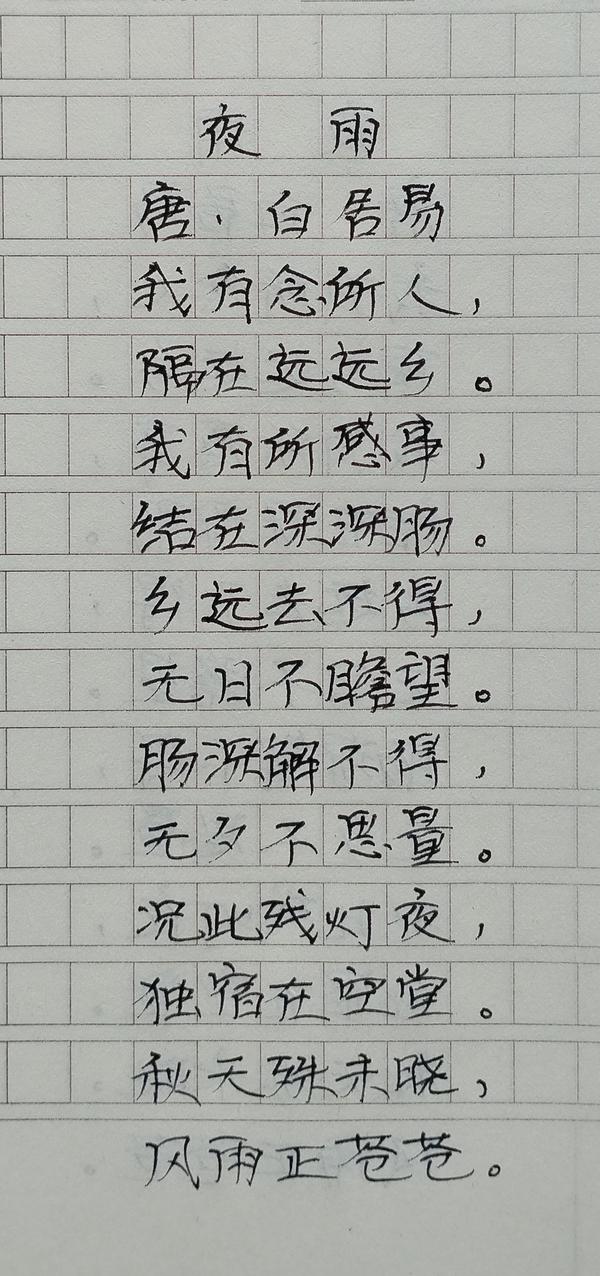 夜雨
唐·白居易
我有念所人，
隔在远远乡。
我有所感事，
结在深深肠。
乡远去不得，
无日不瞻望。
肠深解不得，
无夕不思量。
况此残灯夜，
独宿在空堂。
秋天殊未晓，
风雨正苍苍。